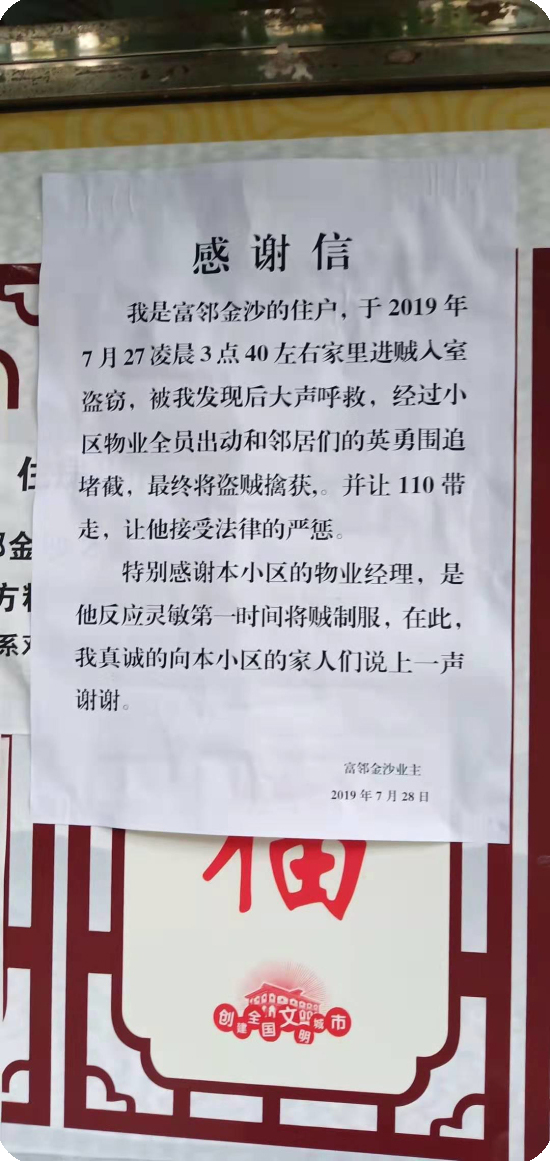 感谢信
我是富邻金沙的住户，于 2019 年
7 月 27 凌晨 3 点 40 左右家里进贼入室
盗窃，被我发现后大声呼救，经过小
区物业全员出动和邻居们的英勇围追
堵截，最终将盗贼擒获,。并让 110 带
走，让他接受法律的严惩。
特别感谢本小区的物业经理，是
他反应灵敏第一时间将贼制服，在此，
我真诚的向本小区的家人们说上一声
谢谢。
富邻金沙业主
2019 年 7 月 28 日
住
邻金
方
系
福
创建全国文明城市